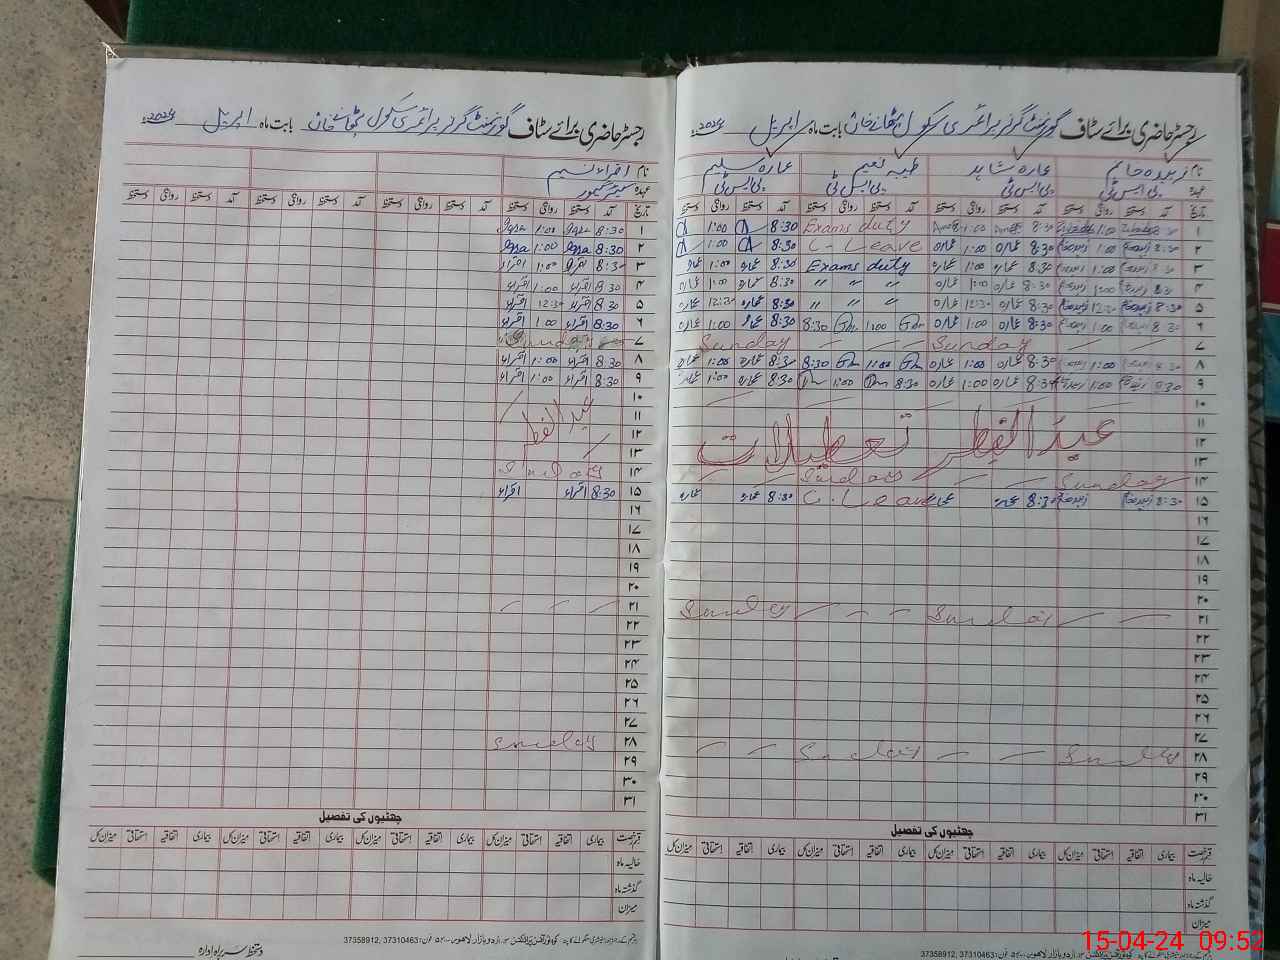 رجسٹر حاضری برائے سٹاف گورنمنٹ گرلز پرائمری سکول بابت ماہ اپریل 2024ء
نام زبیدہ خانم عمارہ شاہد طیبہ نعیم عمارہ سلیم
عہدہ پی ایس ٹی پی ایس ٹی پی ایس ٹی پی ایس ٹی
تاریخ آمد دستخط روانگی دستخط آمد دستخط روانگی دستخط آمد دستخط روانگی دستخط آمد دستخط روانگی دستخط
۱ 8:30 1:00 8:30 1:00 Exams duty 8:30 1:00
۲ 8:30 1:00 8:30 عمارہ 1:00 عمارہ C-Leave 8:30 1:00
۳ 8:30 1:00 8:30 عمارہ 1:00 عمارہ Exams duty 8:30 عمارہ 1:00 عمارہ
۴ 8:30 1:00 8:30 عمارہ 1:00 عمارہ " " " 8:30 عمارہ 1:00 عمارہ
۵ 8:30 12:30 8:30 عمارہ 12:30 عمارہ " " " 8:30 عمارہ 12:30 عمارہ
۶ 8:30 1:00 8:30 عمارہ 1:00 عمارہ 1:00 8:30 8:30 عمارہ 1:00 عمارہ
۷ Sunday Sunday
۸ 8:30 1:00 8:30 عمارہ 1:00 عمارہ 1:00 8:30 8:30 عمارہ 1:00 عمارہ
۹ 8:30 1:00 8:30 عمارہ 1:00 عمارہ 8:30 1:00 8:30 عمارہ 1:00 عمارہ
۱۰
۱۱
۱۲ عید الفطر تعطیلات
۱۳
۱۴ Sunday Sunday
۱۵ 8:30 زبیدہ 8:30 عمارہ C. Leave 8:30 عمارہ
۱۶
۱۷
۱۸
۱۹
۲۰
۲۱ Sunday Sunday
۲۲
۲۳
۲۴
۲۵
۲۶
۲۷
۲۸ Sunday Sunday
۲۹
۳۰
۳۱
چھٹیوں کی تفصیل
قسم رخصت بیماری اتفاقیہ استحقاقی میزان کل بیماری اتفاقیہ استحقاقی میزان کل بیماری اتفاقیہ استحقاقی میزان کل بیماری اتفاقیہ استحقاقی میزان کل
حالیہ ماہ
گذشتہ ماہ
میزان
37358912, 37310463
رجسٹر حاضری برائے سٹاف گورنمنٹ گرلز پرائمری سکول بابت ماہ اپریل 2024ء
نام اقراء نسیم
عہدہ
تاریخ آمد دستخط روانگی دستخط آمد دستخط روانگی دستخط آمد دستخط روانگی دستخط آمد دستخط روانگی دستخط
۱ 8:30 Iqra 1:00 Iqra
۲ 8:30 Iqra 1:00 Iqra
۳ 8:30 اقراء 1:00 اقراء
۴ 8:30 اقراء 1:00 اقراء
۵ 8:30 اقراء 12:30 اقراء
۶ 8:30 اقراء 1:00 اقراء
۷ Sunday
۸ 8:30 اقراء 1:00 اقراء
۹ 8:30 اقراء 1:00 اقراء
۱۰
۱۱ عید الفطر
۱۲
۱۳
۱۴ Sunday
۱۵ 8:30 اقراء اقراء
۱۶
۱۷
۱۸
۱۹
۲۰
۲۱
۲۲
۲۳
۲۴
۲۵
۲۶
۲۷
۲۸ Sunday
۲۹
۳۰
۳۱
چھٹیوں کی تفصیل
قسم رخصت بیماری اتفاقیہ استحقاقی میزان کل بیماری اتفاقیہ استحقاقی میزان کل بیماری اتفاقیہ استحقاقی میزان کل بیماری اتفاقیہ استحقاقی میزان کل
حالیہ ماہ
گذشتہ ماہ
میزان
37358912, 37310463
دستخط سربراہ ادارہ
15-04-24 09:52